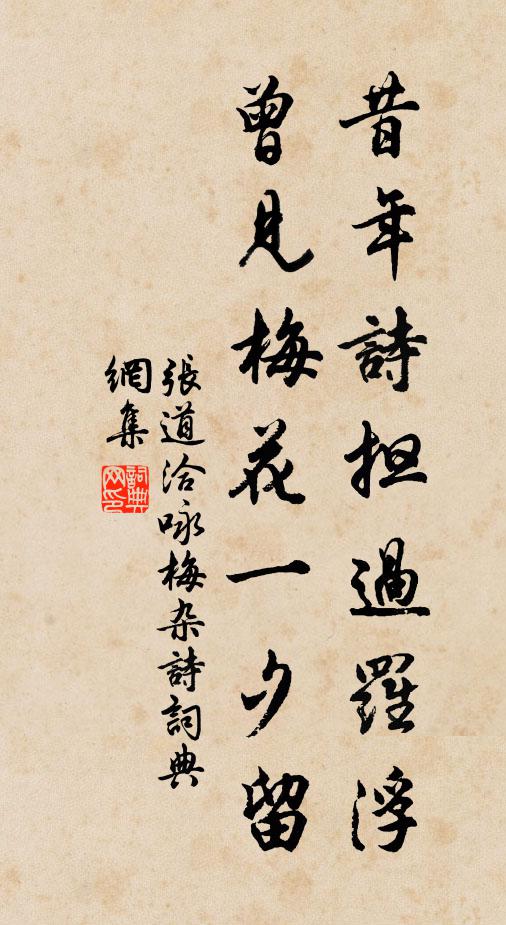 昔年詩担過羅浮
曾見梅花一夕留
張道洽咏梅杂詩詞典
網集
詞典
网印